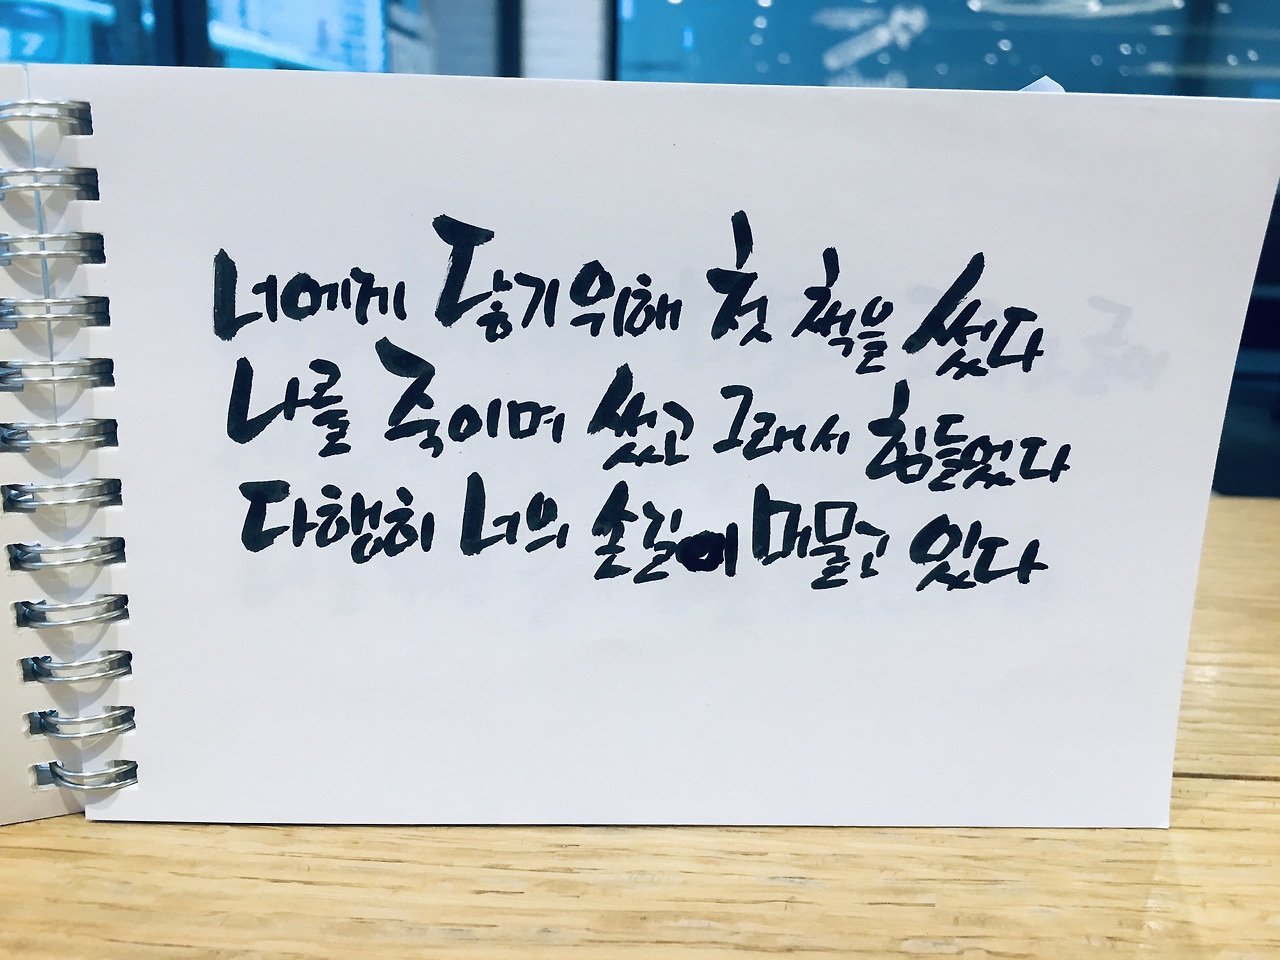 너에게 닿기 위해 첫 책을 썼다
나를 죽이며 썼고 그래서 힘들었다
다행히 너의 손길이 머물고 있다